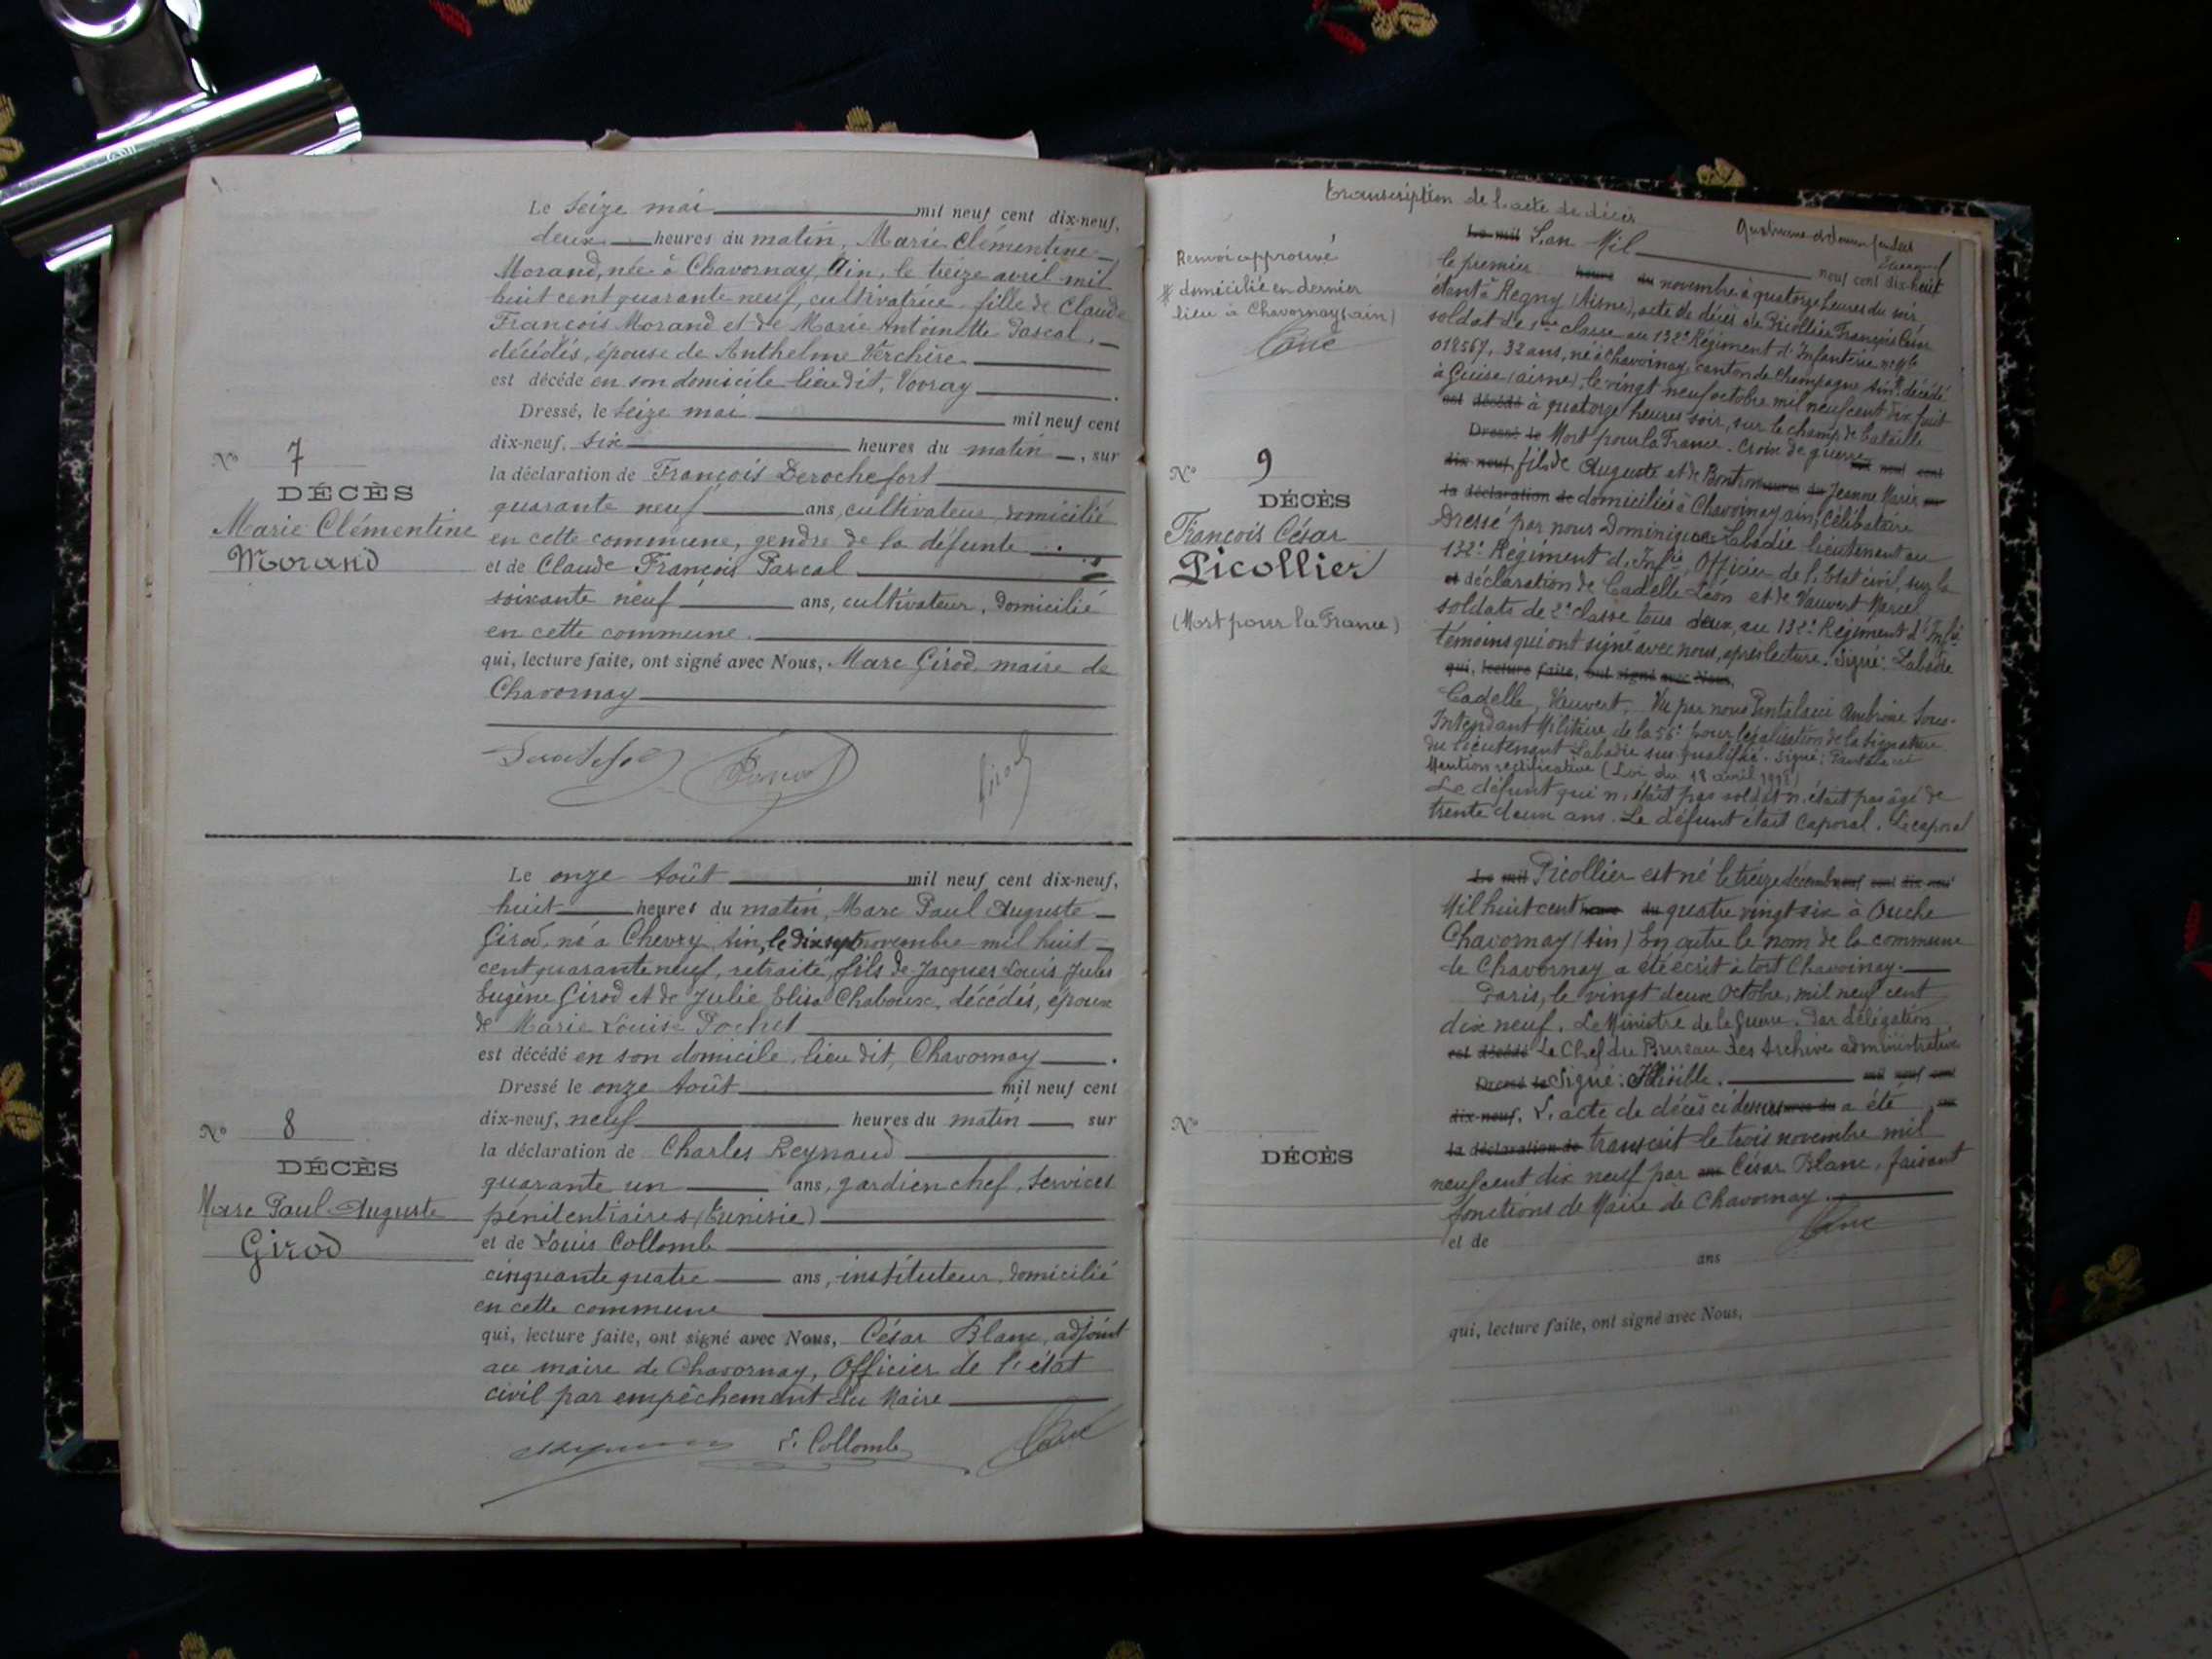 Le Seize mai mil neuf cent dix-neuf,
deux heures du matin, Marie Clémentine
Morand, née à Chavornay, Ain, le treize avril mil
huit cent quarante neuf, cultivatrice, fille de Claude
François Morand et de Marie Antoinette Pascal,
décédés, épouse de Anthelme Verchère
est décédé en son domicile lieu dit, Vooray
Dressé, le Seize mai mil neuf cent
dix-neuf, six heures du matin, sur
la déclaration de François Derochefort
quarante neuf ans, cultivateur, domicilié
en cette commune, gendre de la défunte
et de Claude François Pascal
soixante neuf ans, cultivateur, domicilié
en cette commune.
qui, lecture faite, ont signé avec Nous, Marc Girod, maire de
Chavornay
Girod
N° 7
DÉCÈS
Marie Clémentine
Morand
Le onze Août mil neuf cent dix-neuf,
huit heures du matin, Marc Paul Auguste
Girod, né à Chevry, Ain, le dix sept novembre mil huit
cent quarante neuf, retraité, fils de Jacques Louis Jules
Eugène Girod et de Julie Elisa Chaboux, décédés, époux
de Marie Louise Pochet
est décédé en son domicile, lieu dit, Chavornay.
Dressé le onze Août mil neuf cent
dix-neuf, neuf heures du matin, sur
la déclaration de Charles Reynaud
quarante un ans, gardien chef, Services
pénitentiaires (Tunisie)
et de Louis Collomb
cinquante quatre ans, instituteur, domicilié
en cette commune
qui, lecture faite, ont signé avec Nous, César Blanc, adjoint
au maire de Chavornay, Officier de l'état
civil par empêchement du Maire
L. Collomb Blanc
N° 8
DÉCÈS
Marc Paul Auguste
Girod
transcription de l'acte de décès
Renvoi approuvé
domicilié en dernier
lieu à Chavornay (ain)
Blanc
N° 9
DÉCÈS
François César
Picollier
(Mort pour la France)
Le mil L'an Mil neuf cent dix-huit
le premier heure du novembre à quatorze heures du soir
étant à Regny (Aisne), acte de décès de Picollier François César
soldat de 1ère classe au 132e Régiment d'Infanterie nº Mle
018567, 32 ans, né à Chavoinay, canton de Champagne Ain, décédé
à Guise (aisne), le vingt neuf octobre mil neuf cent dix huit
est décédé à quatorze heures soir, sur le champ de bataille
Dressé le Mort pour la France. Croix de guerre mil neuf cent
dix-neuf, fils de Auguste et de heures du Jeanne Marie sur
la déclaration de domiciliés à Chavoinay ain, Célibataire
Dressé par nous Dominique Labadie lieutenant au
132e Régiment d'Infie, Officier de l'Etat civil, sur la
et déclaration de Cadelle Léon et de Vauvert Marcel
soldats de 2e classe tous deux, au 132e Régiment d'Infie
témoins qui ont signé avec nous, après lecture. Signé: Labadie
qui, lecture faite, ont signé avec Nous,
Cadelle, Vauvert. Vu par nous Ambroise Sous-
Intendant Militaire de la 56e pour légalisation de la signature
du lieutenant Labadie sus-qualifié. Signé:
Mention rectificative (Loi du 18 avril 1918)
Le défunt qui n'était pas soldat n'était pas âgé de
trente deux ans. Le défunt était Caporal. Le caporal
Le mil Picollier est né le treize décembre neuf cent dix-neuf
Mil huit cent heure du quatre vingt six à Ouche
Chavornay (Ain) En outre le nom de la commune
de Chavornay a été écrit à tort Chavoinay.
Paris, le vingt deux Octobre, mil neuf cent
dix neuf. Le Ministre de la Guerre. Par délégation
est décédé Le Chef du Bureau des Archives administratives
Dressé le Signé: mil neuf cent
dix-neuf, L'acte de décès ci dessus heures du a été sur
la déclaration de transcrit le trois novembre mil
neuf cent dix neuf par ans César Blanc, faisant
fonctions de Maire de Chavornay.
Blanc
et de
ans
qui, lecture faite, ont signé avec Nous,
N°
DÉCÈS